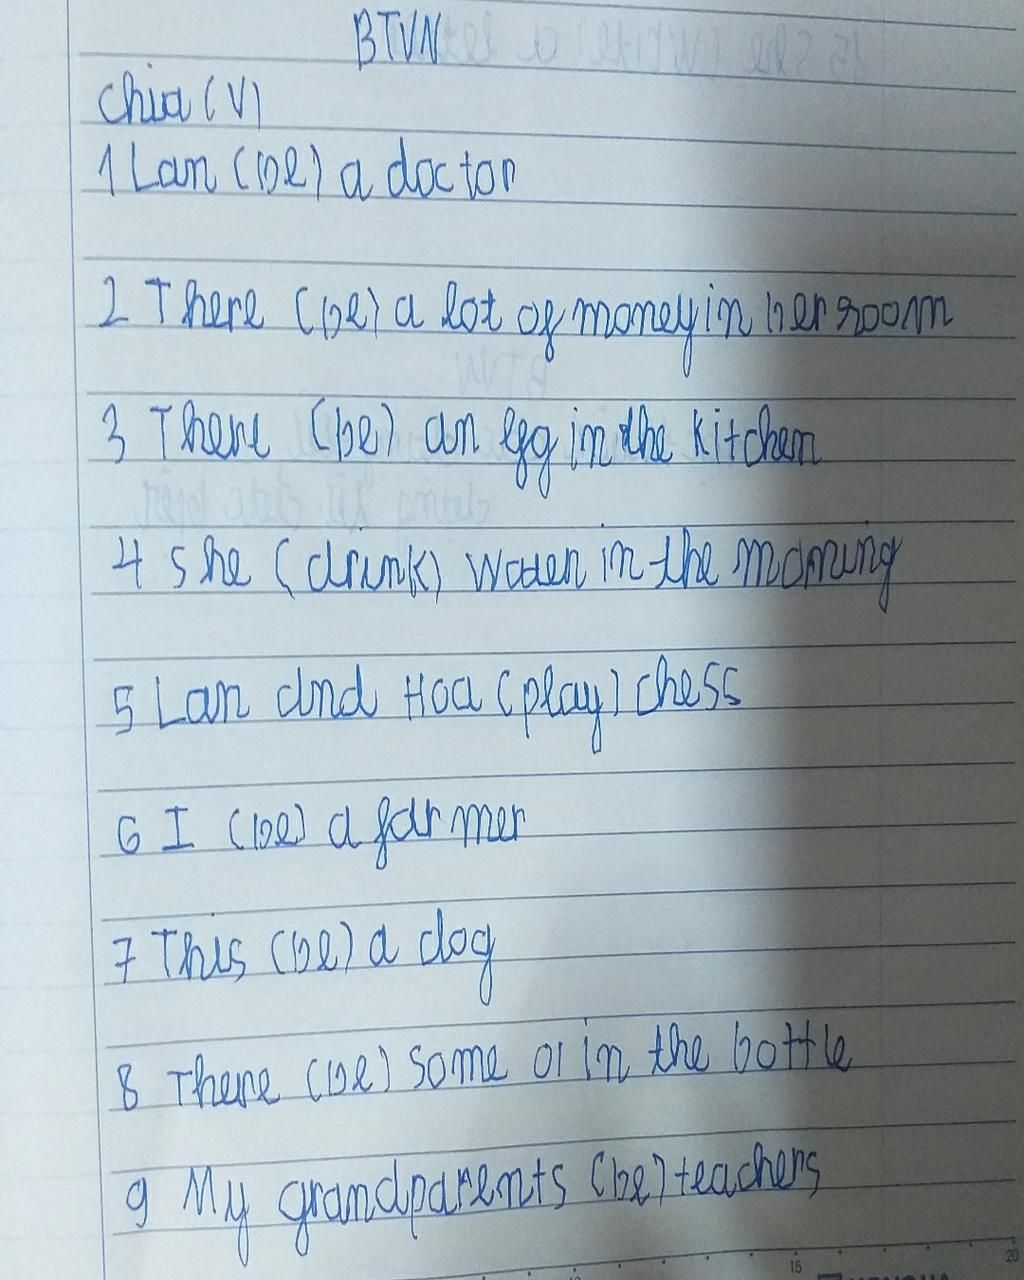 BTVN
Chia (V)
1 Lan (be) a doctor
2 There (be) a lot of money in her room
3 There (be) an egg in the kitchen
4 she (drink) water in the morning
5 Lan and Hoa (play) chess
6 I (be) a farmer
7 This (be) a dog
8 There (be) some oi in the bottle
9 My grandparents (be) teachers
16 20